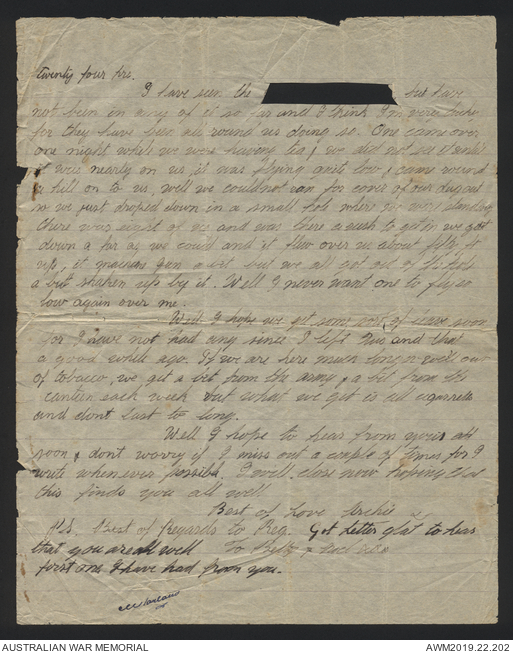 twenty four hrs.
I have seen the but have
not been in any of it so far and I think I'm very lucky
for they have been all round us doing so. One came over
one night while we were having tea, we did not see it until
it was nearly on us, it was flying quite low, came around
a hill on to us, well we could not run for cover of our dug out
so we just droped down in a small hole where we were standing
there was eight of us and was there a rush to get in we got
down as far as we could and it flew over us about fifty ft
up, it machine gun us but we all got out of it
a bit shaken up by it. Well I never want one to fly so
low again over me.
Well I hope we get some sort of leave soon
for I have not had any since I left and that
a good while ago. If we are here much longer we'll out
of tobacco, we get a bit from the army, a bit from the
canteen each week but what we get is all cigarettes
and dont last to long.
Well I hope to hear from you all
soon & dont worry if I miss out a couple of times for I
write when ever possible, I will close now hoping that
this finds you all well
Best of Love Archie
P.S. Best of Regards to Reg. Got letter glad to hear
that you are all well To
first one I have had from you.
AUSTRALIAN WAR MEMORIAL
AWM2019.22.202